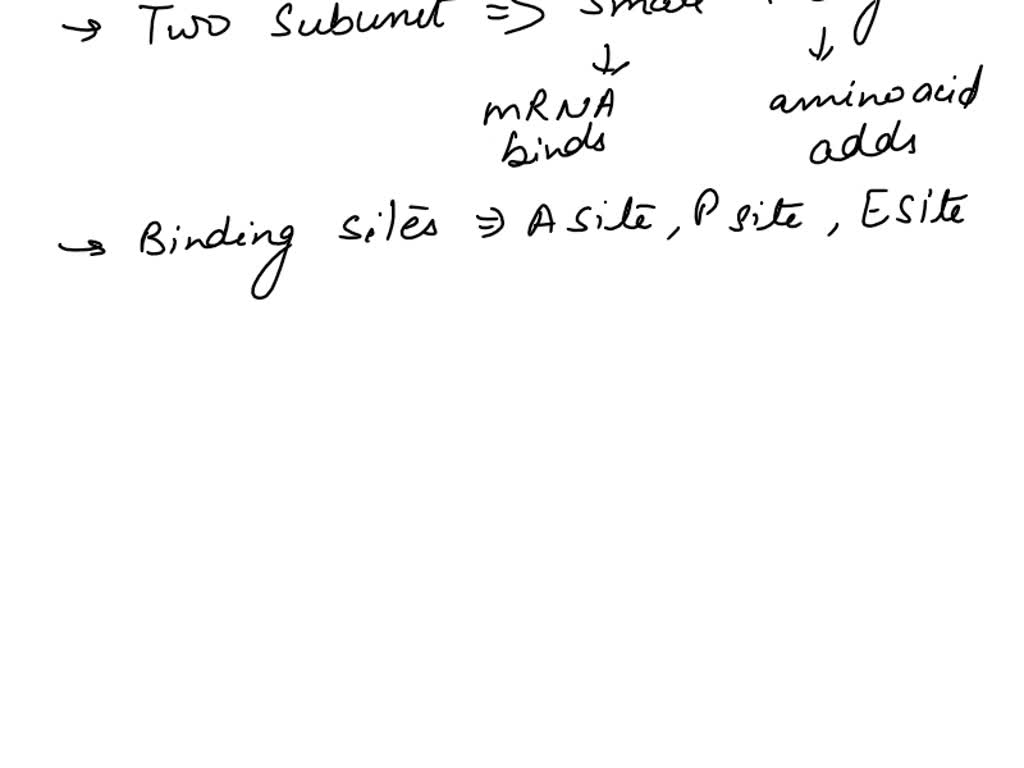 → Two Subunit => small
↓ ↓
mRNA binds
aminoacid adds
→ Binding sites => A site, P site, E site